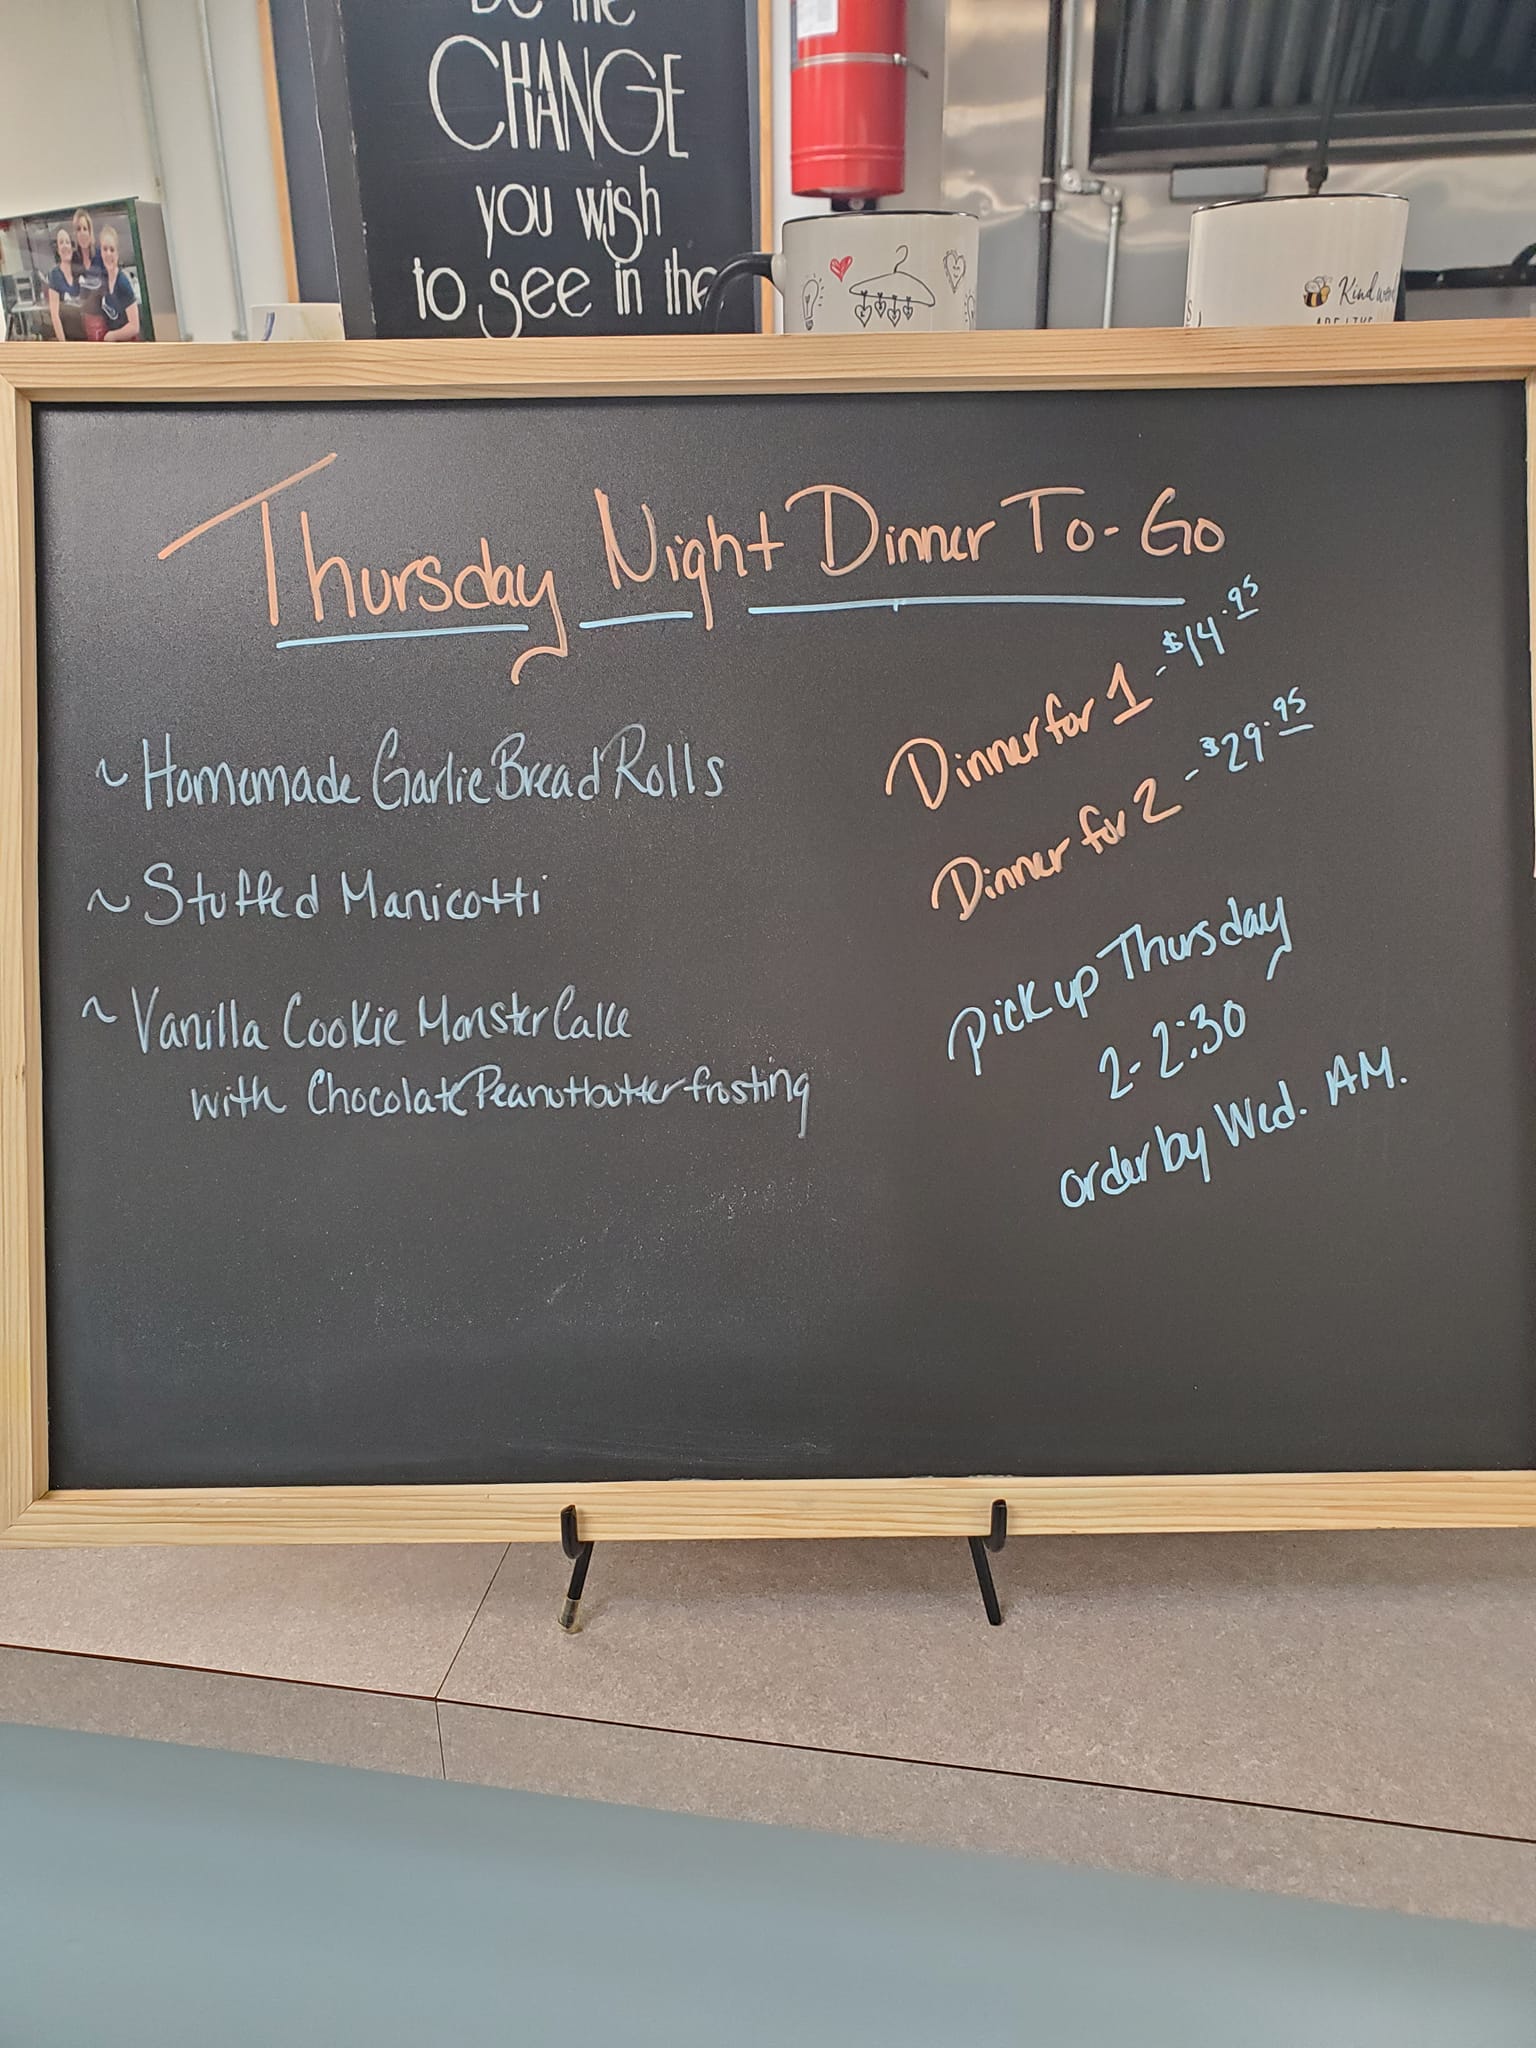 Be the
CHANGE
you wish
to see in the
Kind
Thursday Night Dinner To-Go
~ Homemade Garlic Bread Rolls
~ Stuffed Manicotti
~ Vanilla Cookie Monster Cake
with Chocolate Peanutbutter frosting
Dinner for 1 - $14.95
Dinner for 2 - $29.95
Pick up Thursday
2-2:30
order by Wed. AM.